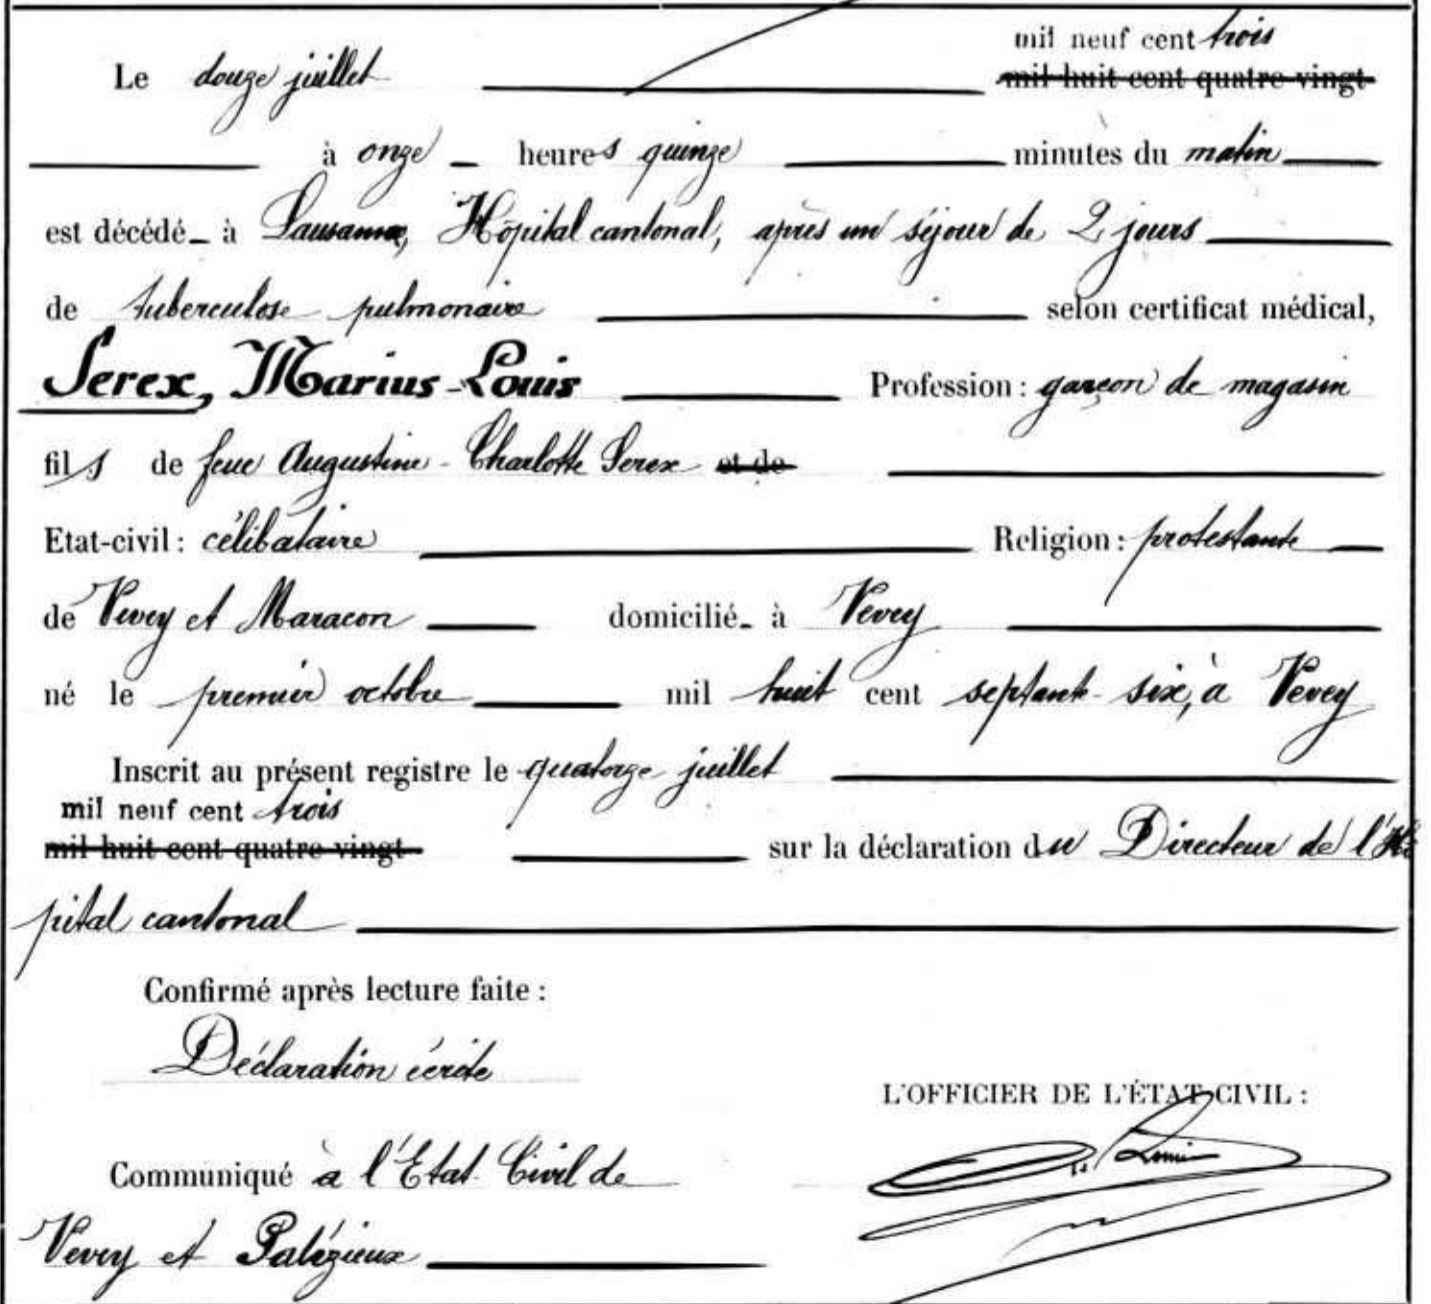 mil neuf cent trois
Le douze juillet mil huit cent quatre-vingt
à onze heures quinze minutes du matin
est décédé à Lausanne, Hôpital cantonal, après un séjour de 2 jours
de tuberculose pulmonaire selon certificat médical,
Serex, Marius-Louis Profession : garçon de magasin
fils de feue Augustine-Charlotte Serex et de
Etat-civil : célibataire Religion : protestante
de Vevey et Maracon domicilié à Vevey
né le premier octobre mil huit cent septante-six, à Vevey
Inscrit au présent registre le quatorze juillet
mil neuf cent trois
mil huit cent quatre-vingt sur la déclaration du Directeur de l'Hô
pital cantonal
Confirmé après lecture faite :
Déclaration écrite
L'OFFICIER DE L'ÉTAT-CIVIL :
Communiqué à l'Etat-Civil de
Vevey et Palézieux